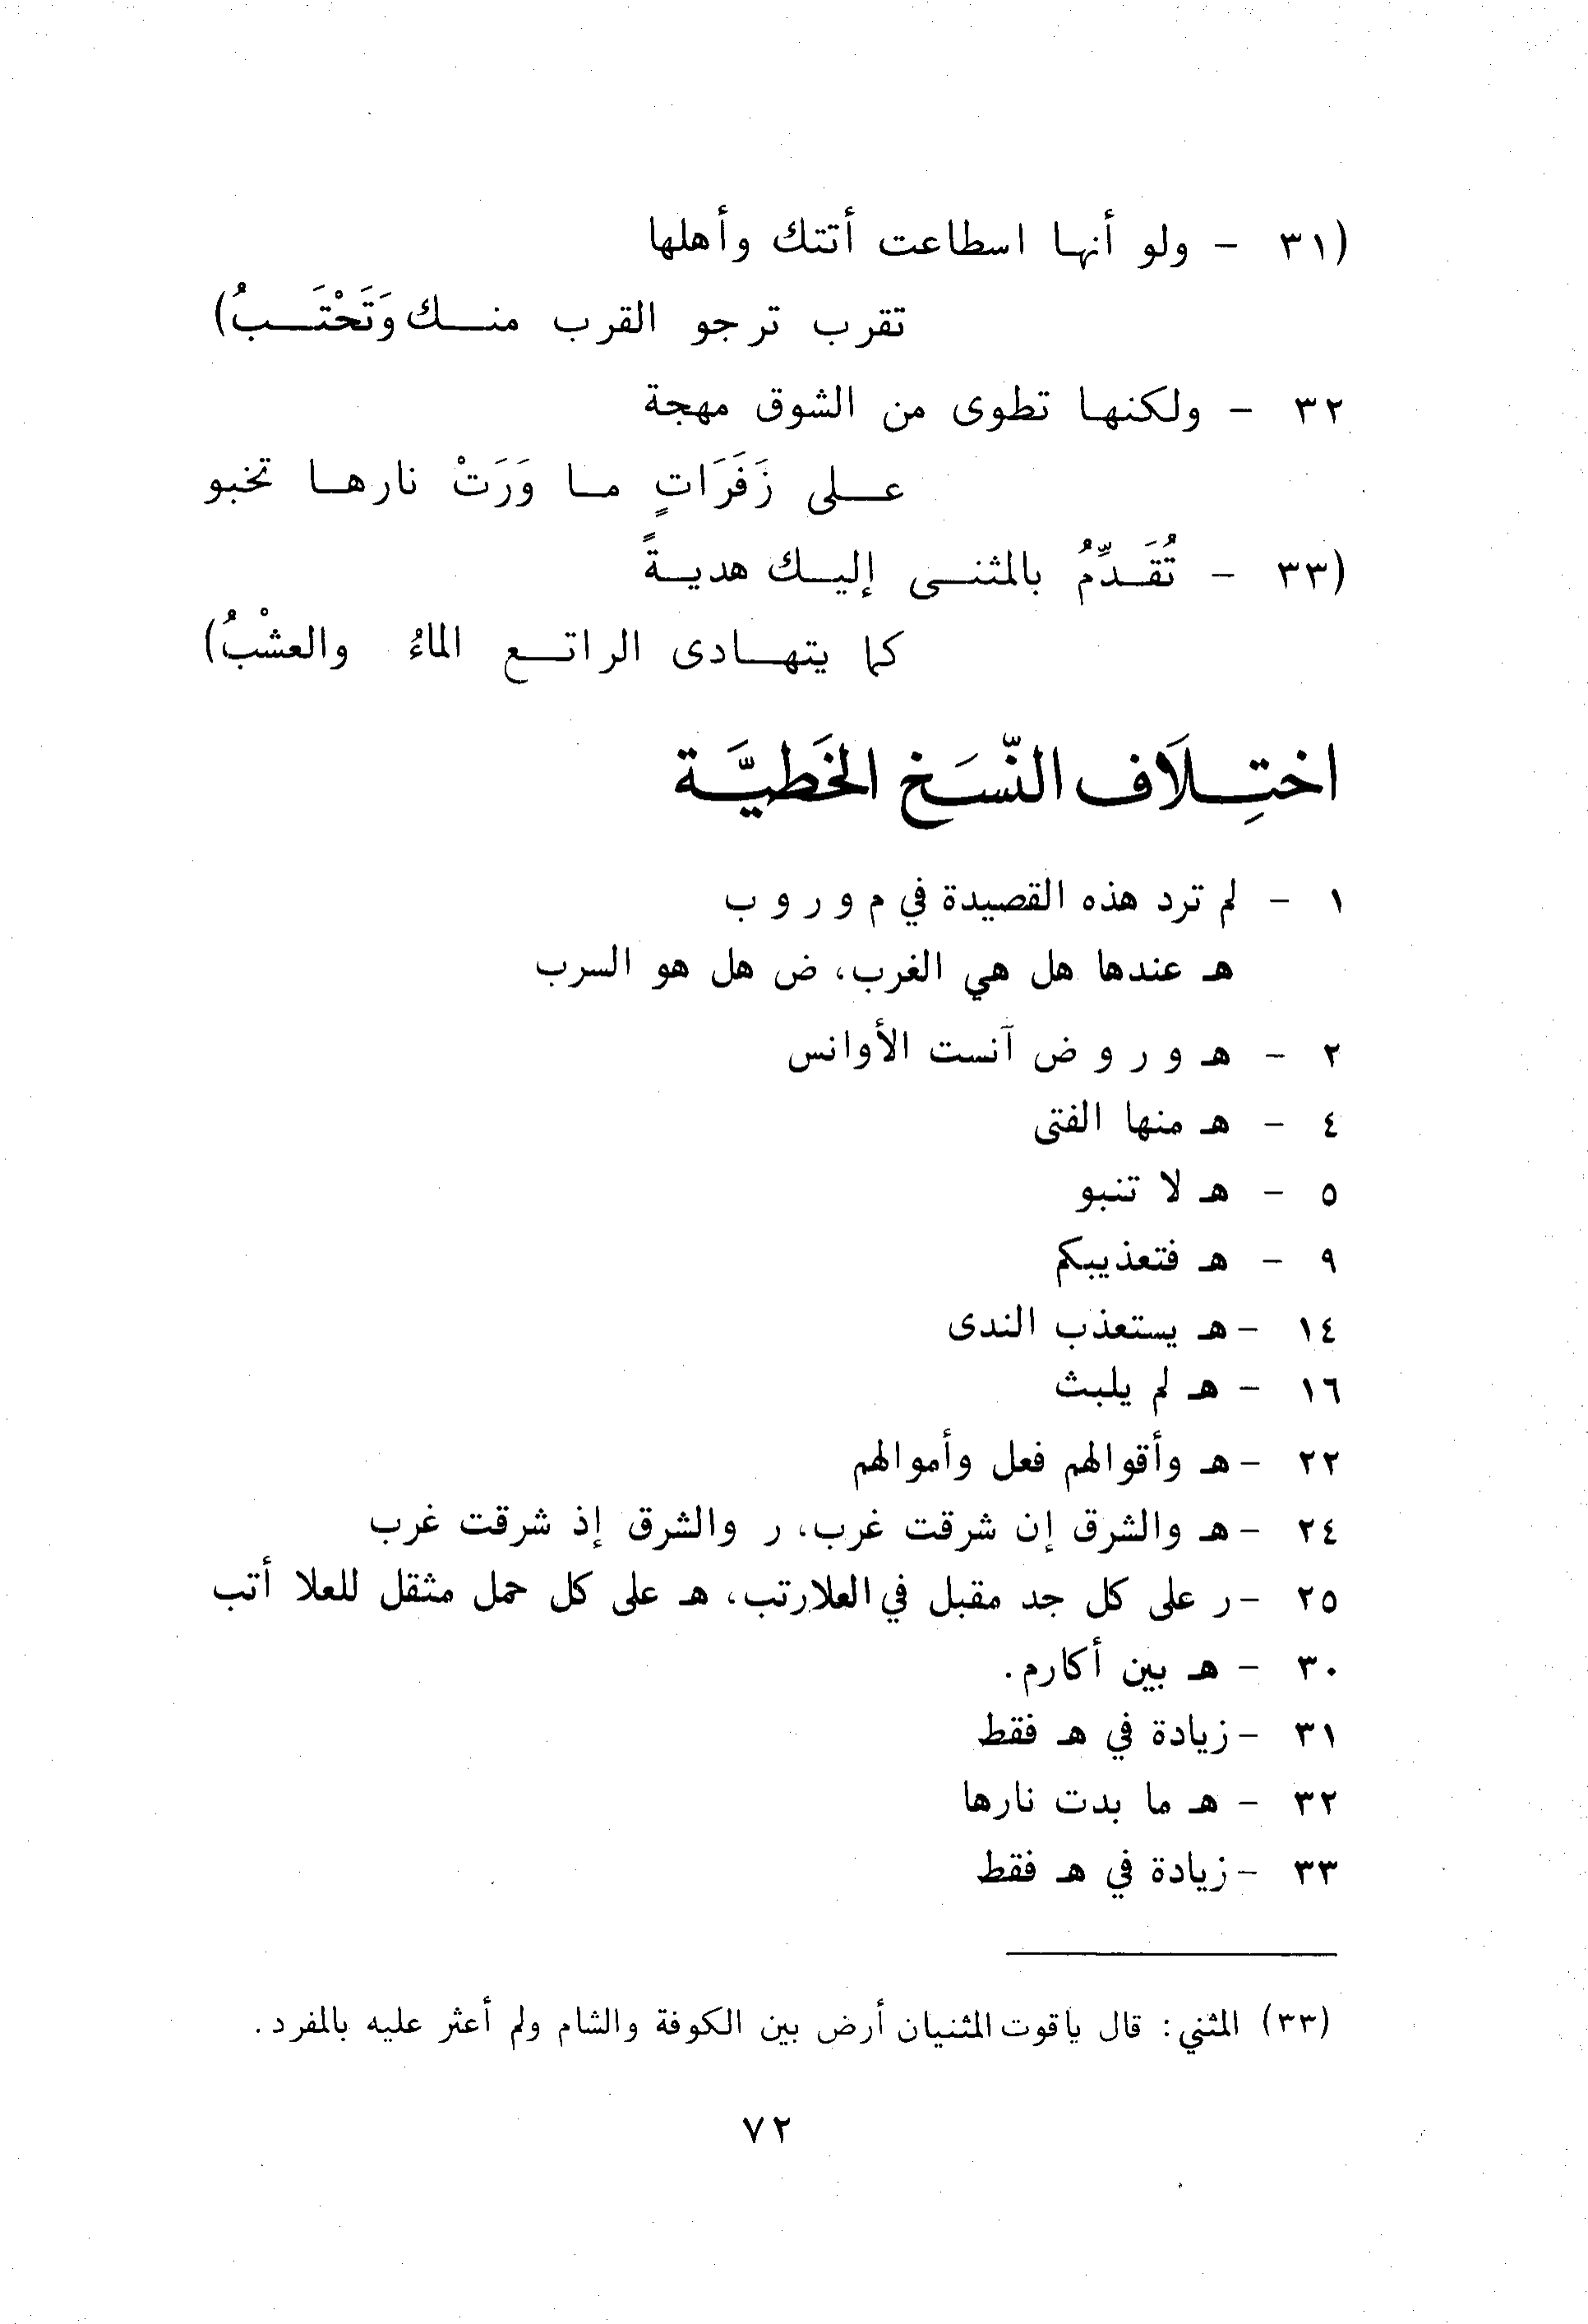 (٣١ - ولو أنها اسطاعت أتتك وأهلها
تقرب ترجو القرب منك وَتَحْتَبُ)
٣٢ - ولكنها تطوى من الشوق مهجة
على زَفَرَاتٍ ما وَرَتْ نارها تخبو
(٣٣ - تُقَدِّمُ بالمثنى إليك هديةً
كما يتهادى الراتع الماءُ والعشْبُ)
اختِلَاف النّسَخ الخَطيَّة
١ - لم ترد هذه القصيدة في م و ر و ب
هـ عندها هل هي الغرب، ض هل هو السرب
٢ - هـ و ر و ض آنست الأوانس
٤ - هـ منها الفتى
٥ - هـ لا تنبو
٩ - هـ فتعذيبكم
١٤ - هـ يستعذب الندى
١٦ - هـ لم يلبث
٢٢ - هـ وأقوالهم فعل وأموالهم
٢٤ - هـ والشرق إن شرقت غرب، ر والشرق إذ شرقت غرب
٢٥ - ر على كل جد مقبل في العلا رتب، هـ على كل حمل مثقل للعلا أتب
٣٠ - هـ بين أكارم.
٣١ - زيادة في هـ فقط
٣٢ - هـ ما بدت نارها
٣٣ - زيادة في هـ فقط
(٣٣) المثني: قال ياقوت المثنيان أرض بين الكوفة والشام ولم أعثر عليه بالمفرد.
٧٢